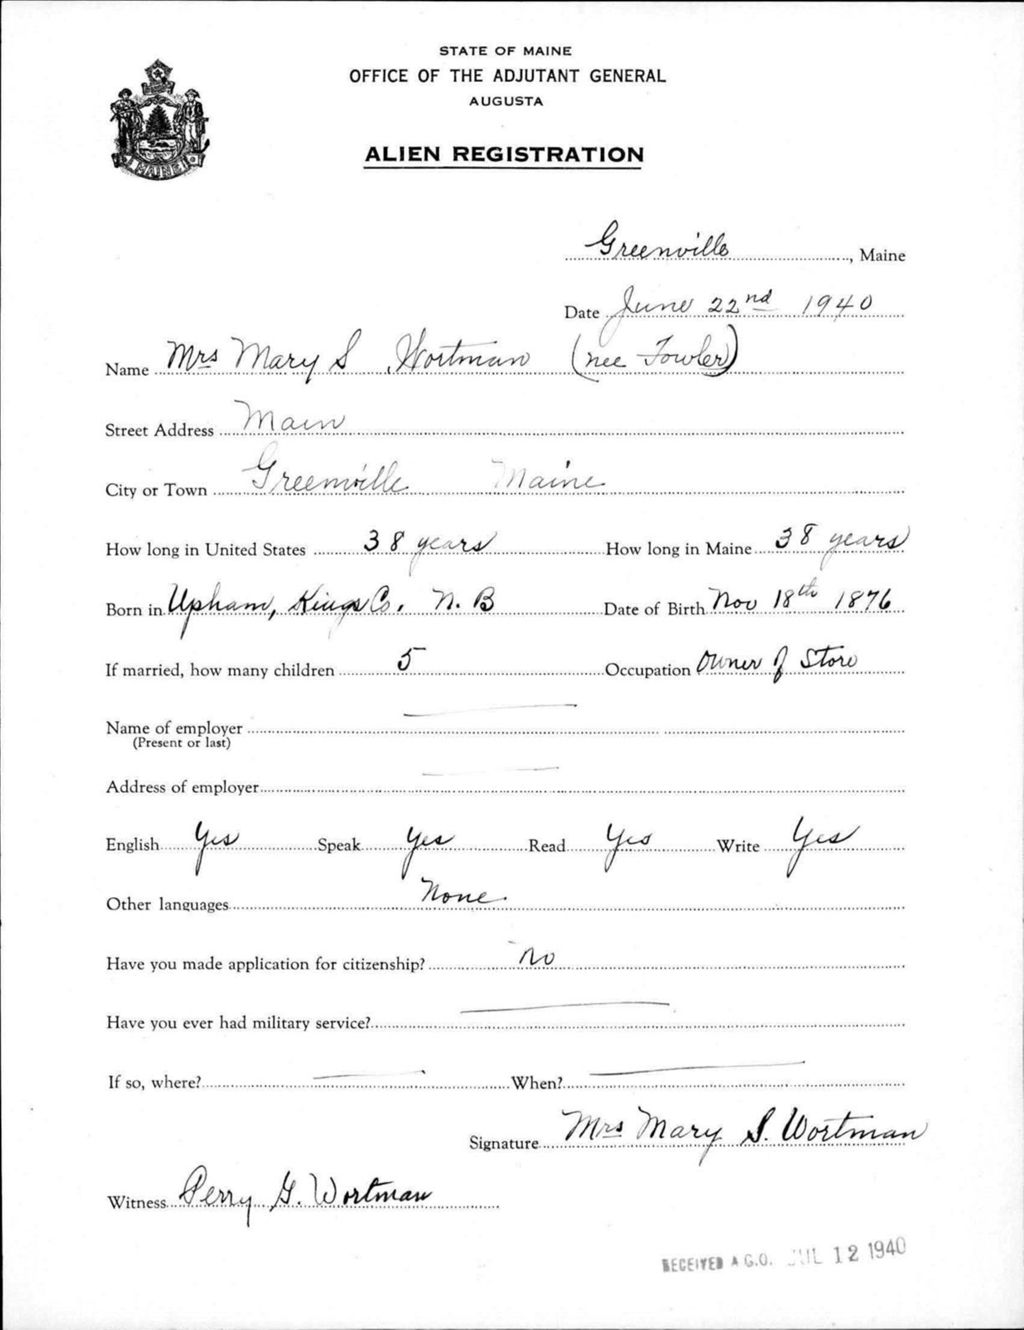 STATE OF MAINE
OFFICE OF THE ADJUTANT GENERAL
AUGUSTA
ALIEN REGISTRATION
MAINE
Greenville, Maine
Date June 22nd 1940
Name Mrs Mary S Wortman (nee Fowler)
Street Address Main
City or Town Greenville Maine
How long in United States 38 years How long in Maine 38 years
Born in Upham, Kings Co. N. B Date of Birth Nov 18th 1876
If married, how many children 5 Occupation Owner of Store
Name of employer
(Present or last)
Address of employer
English Yes Speak Yes Read Yes Write Yes
Other languages None.
Have you made application for citizenship? no
Have you ever had military service?
If so, where? When?
Signature Mrs Mary S. Wortman
Witness Perry G. Wortman
RECEIVED A.G.O. JUL 12 1940